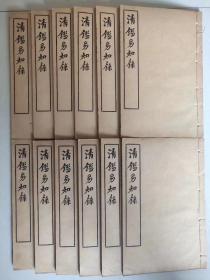 清鑑易知錄
清鑑易知錄
清鑑易知錄
清鑑易知錄
清鑑易知錄
清鑑易知錄
清鑑易知錄
清鑑易知錄
清鑑易知錄
清鑑易知錄
清鑑易知錄
清鑑易知錄